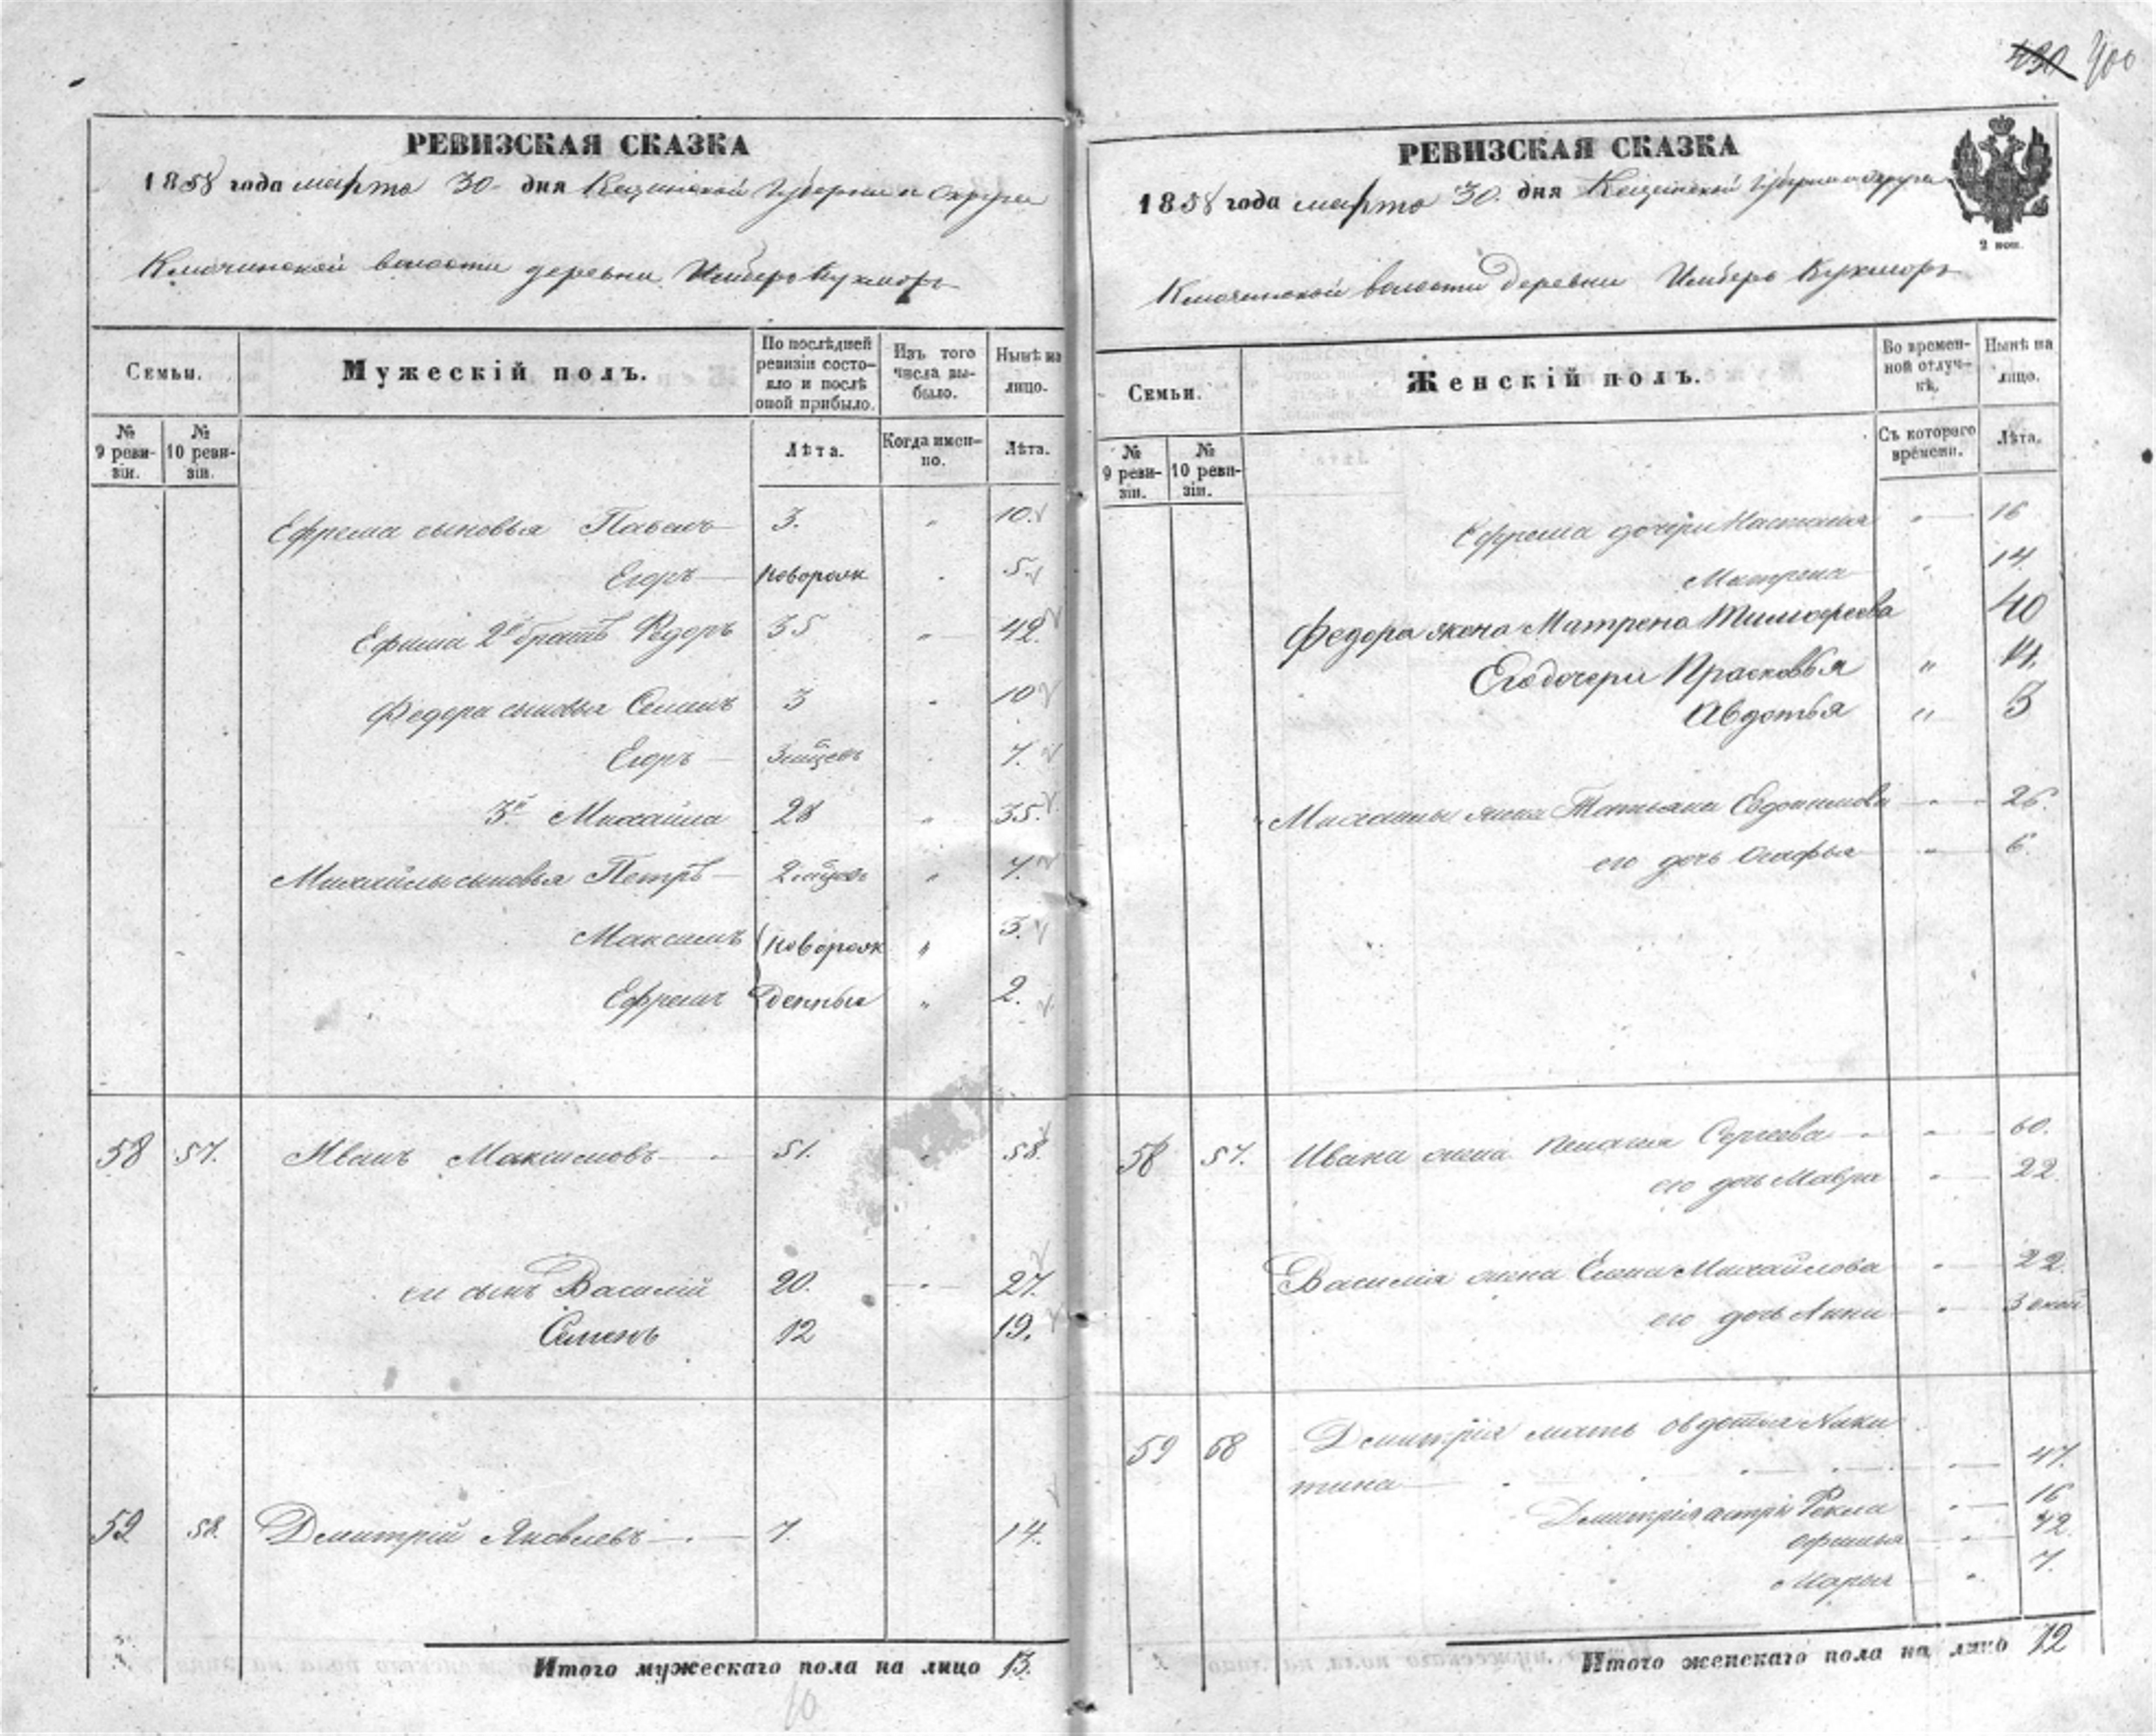 430 400
РЕВИЗСКАЯ СКАЗКА
1858 года марта 30 дня Казанской Губернии и округа
Ключинской волости деревни Имберь Кукморъ
Семьи.
Мужескій полъ.
По послѣдней ревизіи состояло и послѣ оной прибыло.
Изъ того числа выбыло.
Нынѣ на лицо.
№ 9 ревизіи.
№ 10 ревизіи.
Лѣта.
Когда именно.
Лѣта.
Ефрема сыновья Павелъ 3. " 10.
Егоръ новорож " 5.
Ефима 2й братъ Федоръ 35 " 42.
Федора сыновья Семенъ 3 " 10
Егоръ 3 месец " 7.
3й Михаила 28 " 35.
Михайлы сыновья Петръ 2 " 7.
Максимъ новорож " 3.
Ефремъ денные " 2.
58 57. Иванъ Максимовъ 51. " 58.
его сынъ Василій 20. " 27.
Семенъ 12 19.
59 58. Дмитрій Яковлевъ 7. 14.
Итого мужескаго пола на лицо 13.
10
РЕВИЗСКАЯ СКАЗКА
1858 года марта 30. дня Казанской Губернии и округа
2 коп.
Ключинской волости деревни Имберь Кукморъ
Семьи.
Женскій полъ.
Во временной отлучкѣ.
Нынѣ на лицо.
№ 9 ревизіи.
№ 10 ревизіи.
Съ котораго времени.
Лѣта.
Ефрема дочери Настасья " 16
Матрена " 14.
Федора жена Матрена Тимофеева 40
Его дочери Прасковья " 14.
Авдотья " 3
Михайлы жена Татьяна Евдокимова " 26.
его дочь Агафья " 6.
58 57. Ивана жена Пелагея Сергеева " 60.
его дочь Мавра " 22
Василия жена Елена Михайлова " 22.
его дочь Анна " 3
59 68 Дмитрія мать Овдотья Ники
тина " 47.
Дмитрія сестры Фекла " 16
Офимья " 12
Марья " 7.
Итого женскаго пола на лицо 12